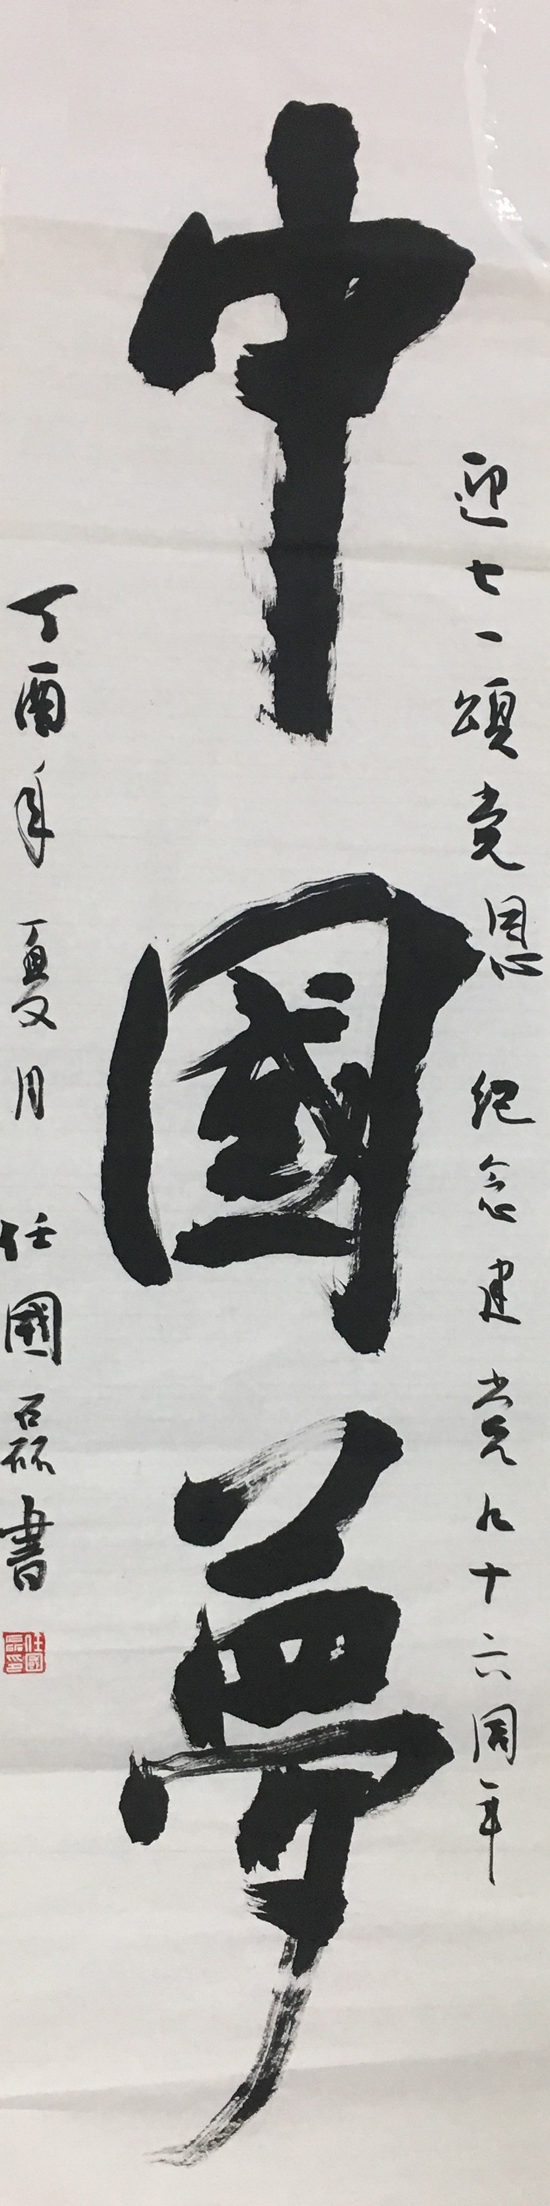 迎七一頌党恩 纪念建党九十六周年
中國夢
丁酉年夏月 任國磊書
任國磊印